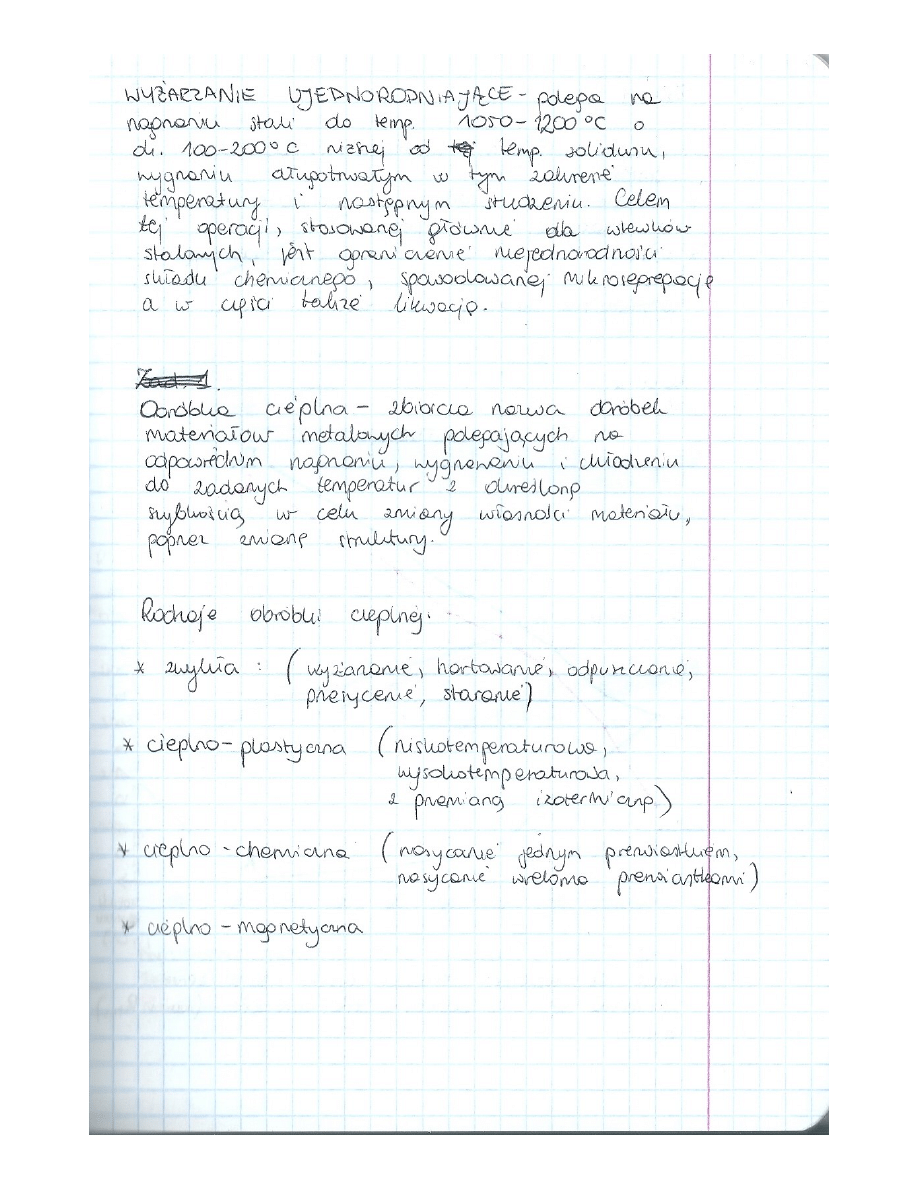 WYŻARZANIE UJEDNORODNIAJĄCE - polega na
nagrzaniu stali do temp. 1050-1200°C o
ok. 100-200°C niższej od temp. solidusu,
wygrzaniu długotrwałym w tym zakresie
temperatury i następnym studzeniu. Celem
tej operacji, stosowanej głównie dla wlewków
stalowych, jest ograniczenie niejednorodności
składu chemicznego, spowodowanej mikrosegregacją
a w części także likwacją.
Obróbka cieplna - zbiorcza nazwa obróbek
materiałów metalowych polegających na
odpowiednim nagrzaniu, wygrzewaniu i chłodzeniu
do zadanych temperatur z określoną
szybkością w celu zmiany własności materiału,
poprzez zmianę struktury.
Rodzaje obróbki cieplnej.
* zwykła : (wyżarzanie, hartowanie, odpuszczanie,
przesycenie, starzenie)
* cieplno-plastyczna (niskotemperaturowa,
wysokotemperaturowa,
z przemianą izotermiczną)
* cieplno - chemiczna (nasycanie jednym pierwiastkiem,
nasycanie wieloma pierwiastkami)
* cieplno - magnetyczna